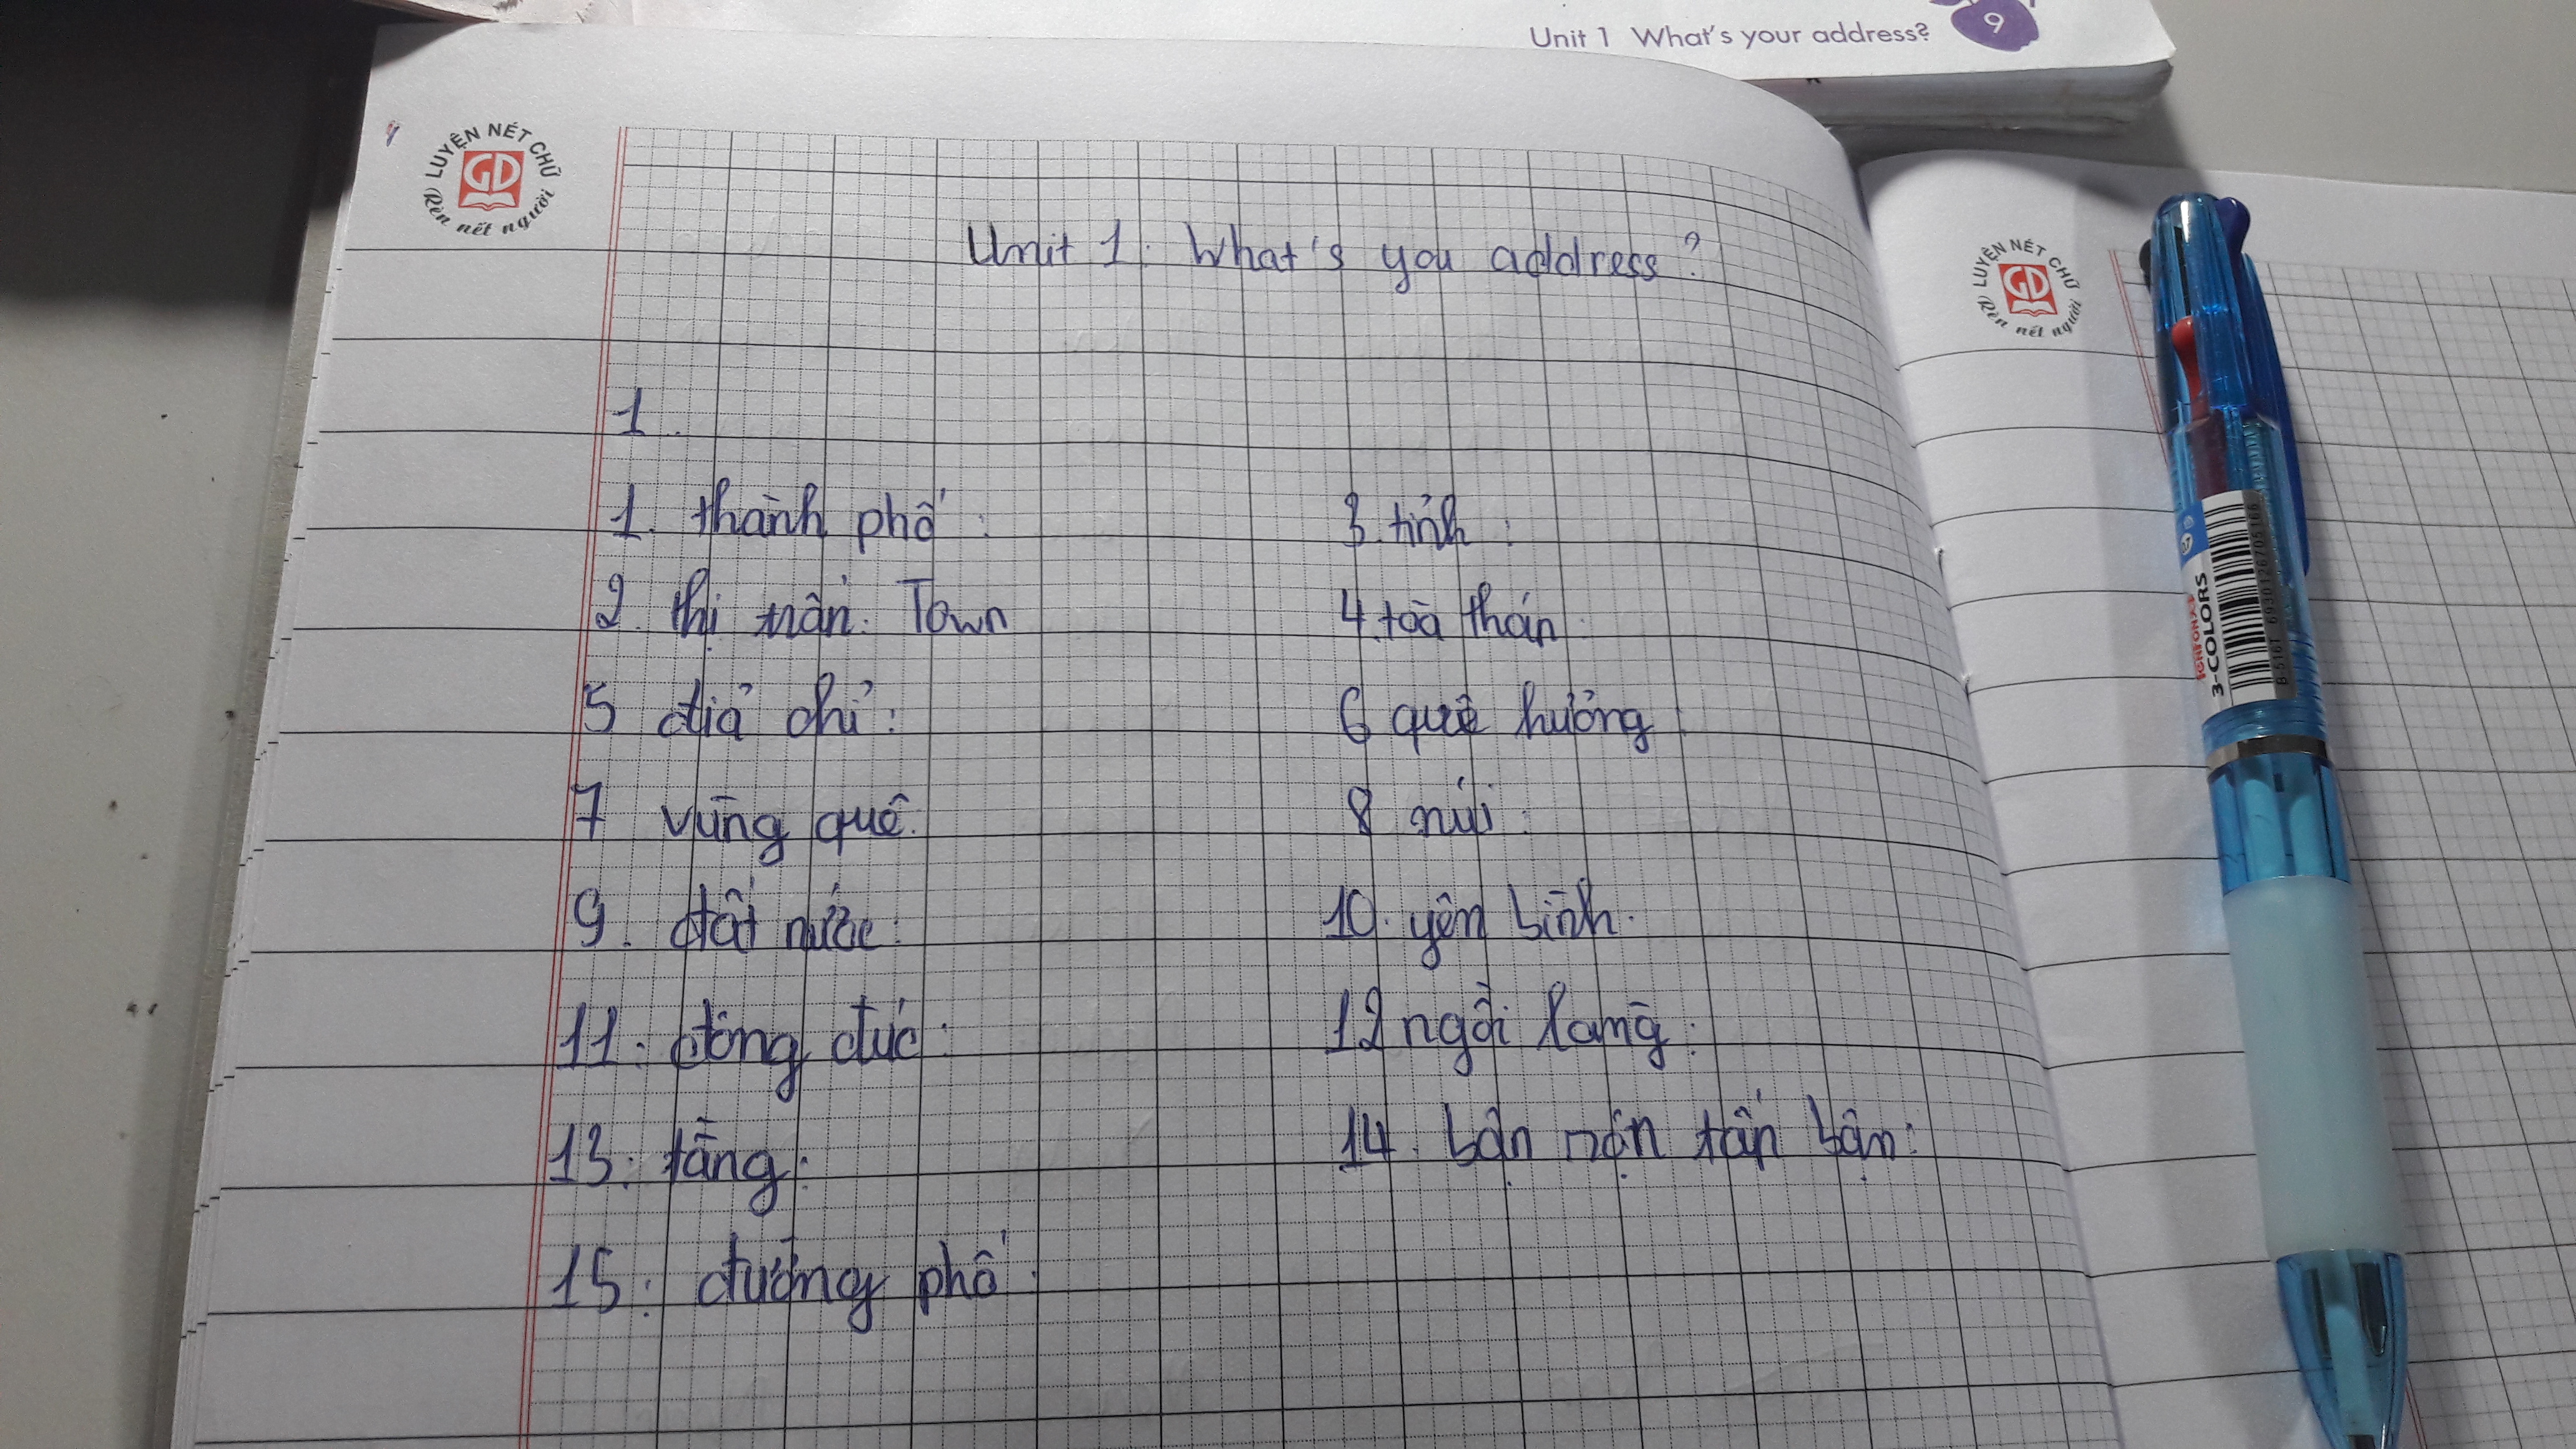 Unit 1 What's your address? 9
LUYỆN NÉT CHỮ
GD
Rèn nết người
LUYỆN NÉT CHỮ
GD
Rèn nết người
Unit 1: What's you address?
1.
1. thành phố: 3. tỉnh:
2. thị trấn: Town 4. toà thán:
5 địả chỉ: 6 quê hưởng:
7 vùng quê: 8 núi:
9. đất nước: 10. yên bình:
11: đông đúc: 12 ngôi làng:
13: tầng: 14. bận rộn tấn bận:
15: đường phố:
3-COLORS